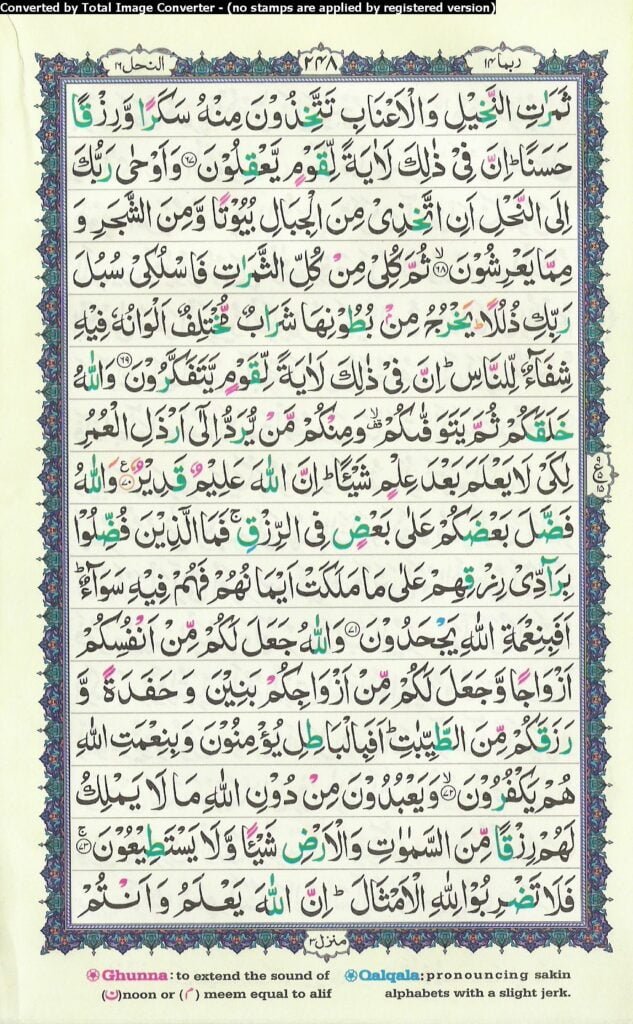 Converted by Total Image Converter - (no stamps are applied by registered version)
النحل ١٦ ٢٤٨ ربما ١٤
ثَمَرٰتِ النَّخِيْلِ وَالْاَعْنَابِ تَتَّخِذُوْنَ مِنْهُ سَكَرًا وَّرِزْقًا
حَسَنًا ؕ اِنَّ فِيْ ذٰلِكَ لَاٰيَةً لِّقَوْمٍ يَّعْقِلُوْنَ ﴿۶۷﴾ وَاَوْحٰى رَبُّكَ
اِلَى النَّحْلِ اَنِ اتَّخِذِيْ مِنَ الْجِبَالِ بُيُوْتًا وَّمِنَ الشَّجَرِ وَ
مِمَّا يَعْرِشُوْنَ ﴿ۙ۶۸﴾ ثُمَّ كُلِيْ مِنْ كُلِّ الثَّمَرٰتِ فَاسْلُكِيْ سُبُلَ
رَبِّكِ ذُلُلًا ؕ يَخْرُجُ مِنْۢ بُطُوْنِهَا شَرَابٌ مُّخْتَلِفٌ اَلْوَانُهٗ فِيْهِ
شِفَآءٌ لِّلنَّاسِ ؕ اِنَّ فِيْ ذٰلِكَ لَاٰيَةً لِّقَوْمٍ يَّتَفَكَّرُوْنَ ﴿۶۹﴾ وَاللّٰهُ
خَلَقَكُمْ ثُمَّ يَتَوَفّٰىكُمْ ۙ۫ وَمِنْكُمْ مَّنْ يُّرَدُّ اِلٰٓى اَرْذَلِ الْعُمُرِ
لِكَيْ لَا يَعْلَمَ بَعْدَ عِلْمٍ شَيْـًٔا ؕ اِنَّ اللّٰهَ عَلِيْمٌ قَدِيْرٌ ﴿۷۰﴾ ع وَاللّٰهُ
فَضَّلَ بَعْضَكُمْ عَلٰى بَعْضٍ فِي الرِّزْقِ ۚ فَمَا الَّذِيْنَ فُضِّلُوْا
بِرَآدِّيْ رِزْقِهِمْ عَلٰى مَا مَلَكَتْ اَيْمَانُهُمْ فَهُمْ فِيْهِ سَوَآءٌ ؕ
اَفَبِنِعْمَةِ اللّٰهِ يَجْحَدُوْنَ ﴿۷۱﴾ وَاللّٰهُ جَعَلَ لَكُمْ مِّنْ اَنْفُسِكُمْ
اَزْوَاجًا وَّجَعَلَ لَكُمْ مِّنْ اَزْوَاجِكُمْ بَنِيْنَ وَحَفَدَةً وَّ
رَزَقَكُمْ مِّنَ الطَّيِّبٰتِ ؕ اَفَبِالْبَاطِلِ يُؤْمِنُوْنَ وَبِنِعْمَتِ اللّٰهِ
هُمْ يَكْفُرُوْنَ ﴿ۙ۷۲﴾ وَيَعْبُدُوْنَ مِنْ دُوْنِ اللّٰهِ مَا لَا يَمْلِكُ
لَهُمْ رِزْقًا مِّنَ السَّمٰوٰتِ وَالْاَرْضِ شَيْـًٔا وَّلَا يَسْتَطِيْعُوْنَ ﴿ۚ۷۳﴾
فَلَا تَضْرِبُوْا لِلّٰهِ الْاَمْثَالَ ؕ اِنَّ اللّٰهَ يَعْلَمُ وَاَنْتُمْ
منزل ٣
Ghunna: to extend the sound of (ن)noon or (م) meem equal to alif
Qalqala: pronouncing sakin alphabets with a slight jerk.